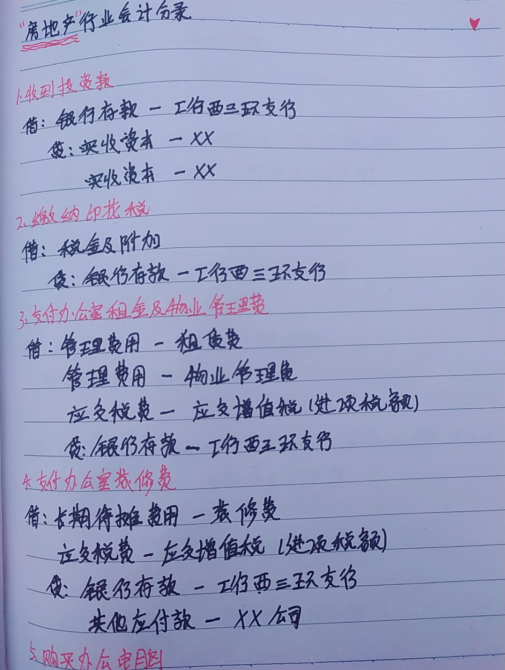 "房地产"行业会计分录
1.收到投资款
借：银行存款 — 工行西三环支行
贷：实收资本 — XX
实收资本 — XX
2.缴纳印花税
借：税金及附加
贷：银行存款 — 工行西三环支行
3.支付办公室租金及物业管理费
借：管理费用 — 租赁费
管理费用 — 物业管理费
应交税费 — 应交增值税(进项税额)
贷：银行存款 — 工行西三环支行
4.支付办公室装修费
借：长期待摊费用 — 装修费
应交税费 — 应交增值税(进项税额)
贷：银行存款 — 工行西三环支行
其他应付款 — XX公司
5.购买办公室